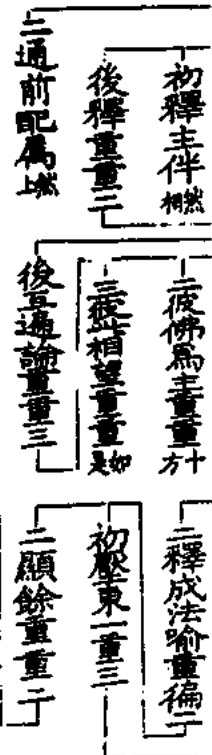 初釋主伴然相
後釋重重二
二通前配屬然上
二彼佛為主重重十方
三彼此相望重重如是
後互遍論重重三
二釋成法喻重徧二
初壓東一重三
二顯餘重重二